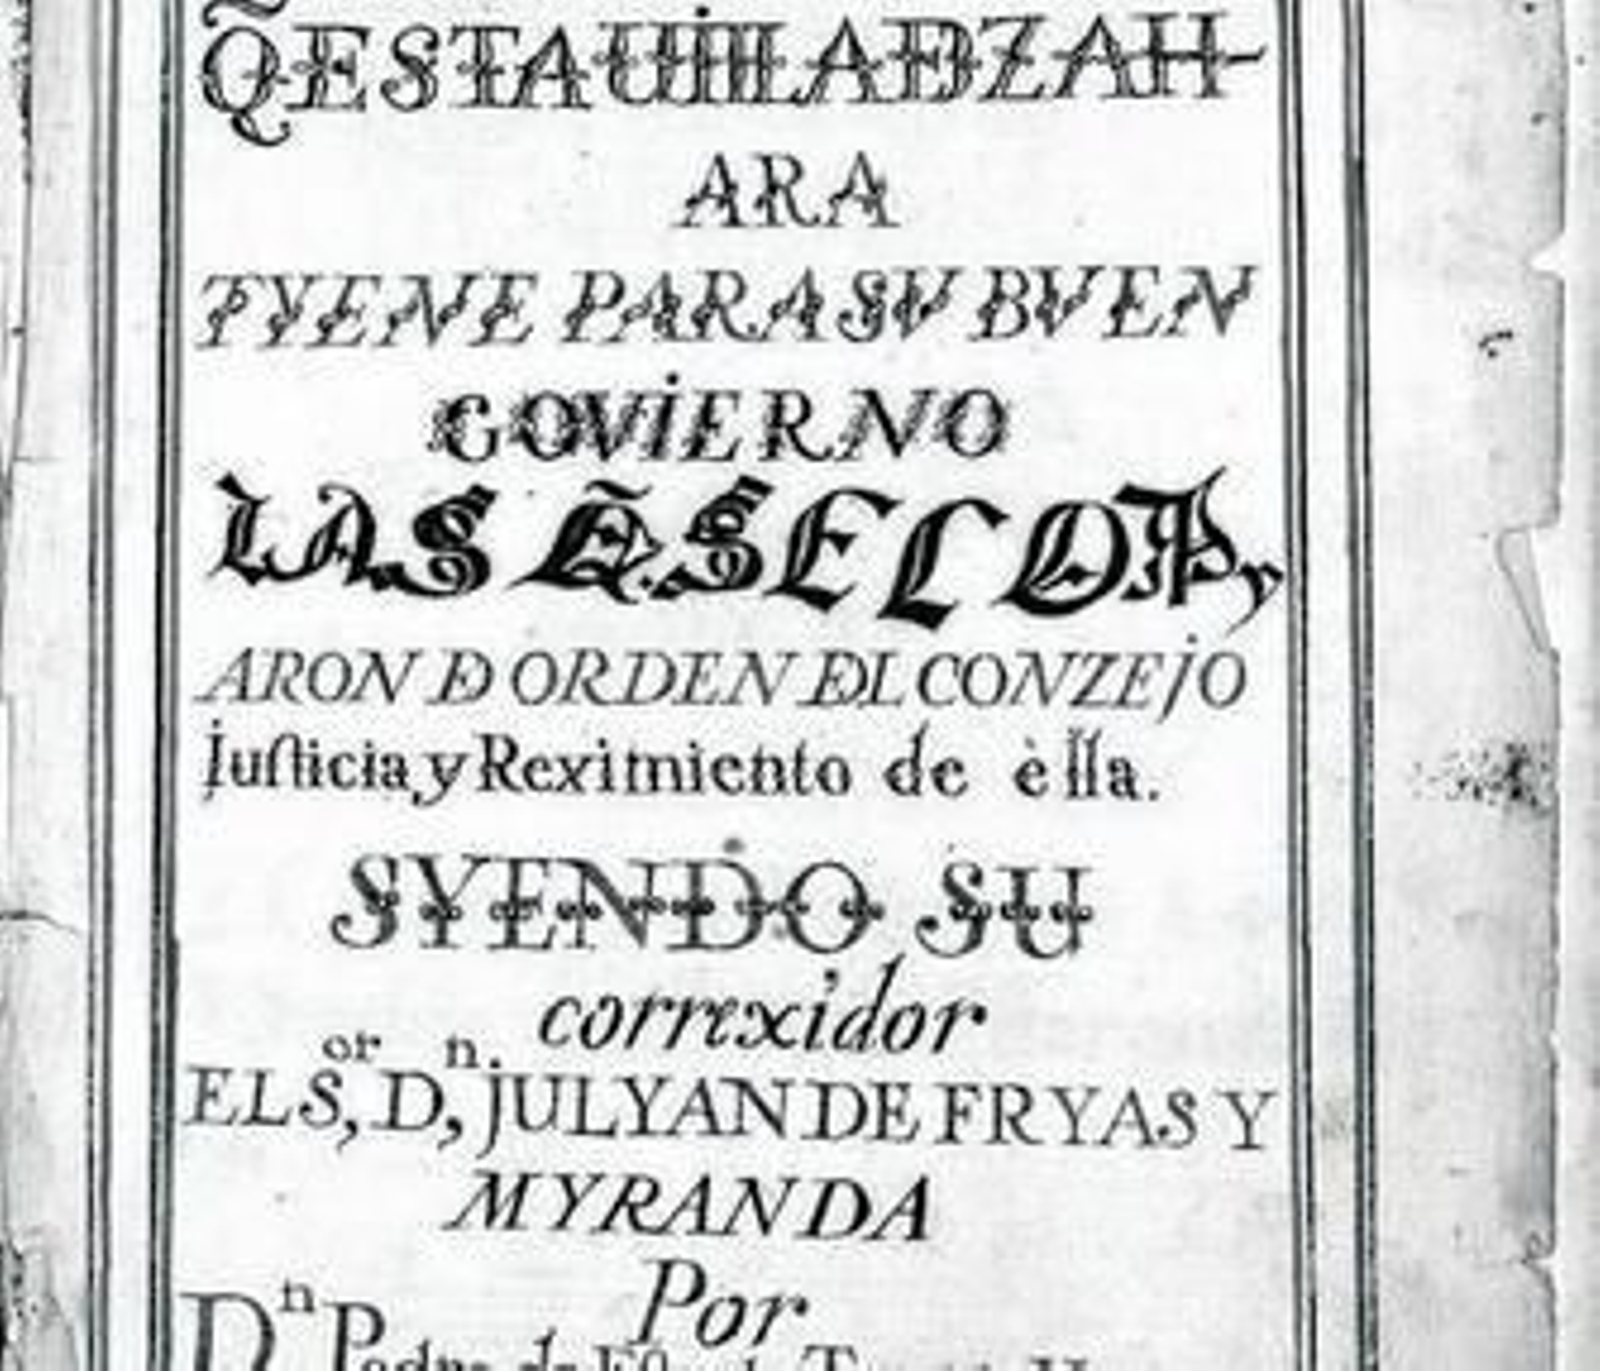 Q̃ ESTA UILLA DE ZAH
ARA
TYENE PARA SV BVEN
GOVIERNO
LAS Q̃. SE COP,
ARON DE ORDEN DEL CONZEJO
Iusticia y Reximiento de èlla.
SYENDO SU
correxidor
EL S,or D,n. JULYAN DE FRYAS Y
MYRANDA
Por
Dn Pedro de